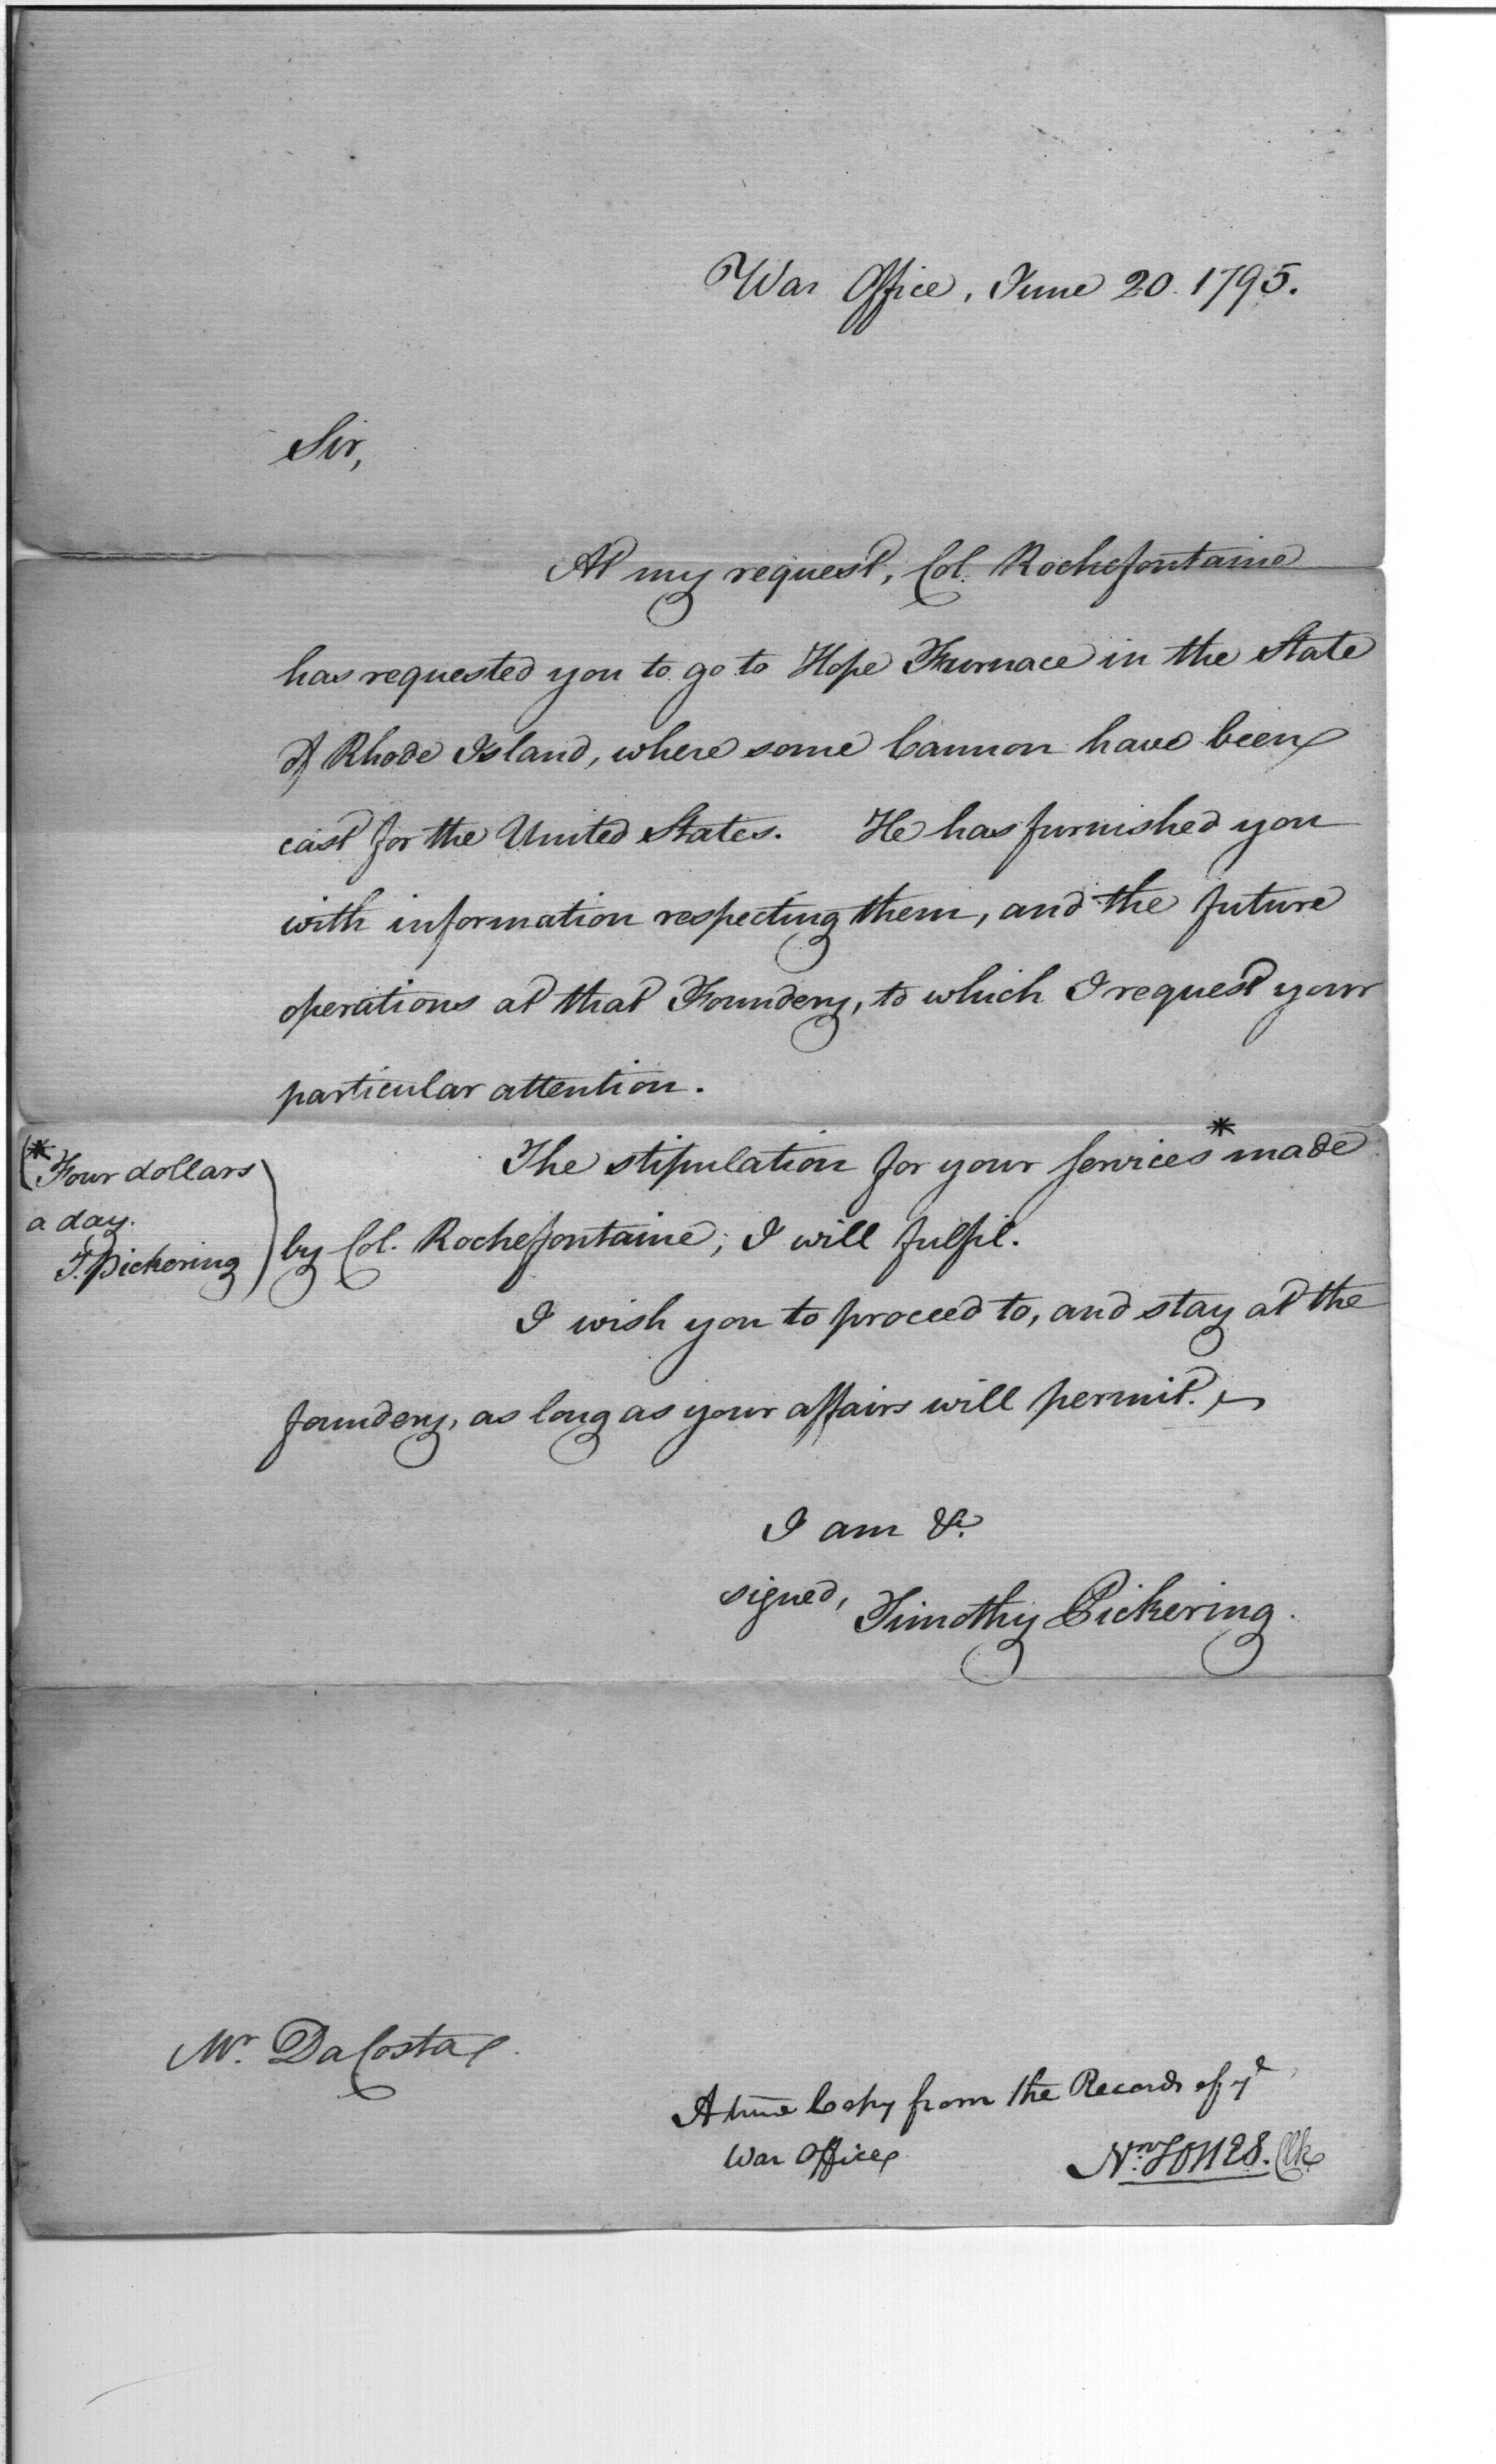 War Office, June 20. 1795.
Sir,
At my request, Col. Rochefontaine
has requested you to go to Hope Furnace in the State
of Rhode Island, where some Cannon have been
cast for the United States. He has furnished you
with information respecting them, and the future
operations at that Foundery, to which I request your
particular attention.
The stipulation for your services* made
by Col. Rochefontaine, I will fulfil.
(*Four dollars
a day.
T. Pickering)
I wish you to proceed to, and stay at the
foundery, as long as your affairs will permit.
I am &c.
signed, Timothy Pickering.
Mr. DaCosta
A true Copy from the Records of ye
War Office
Nn. Jones. Clk